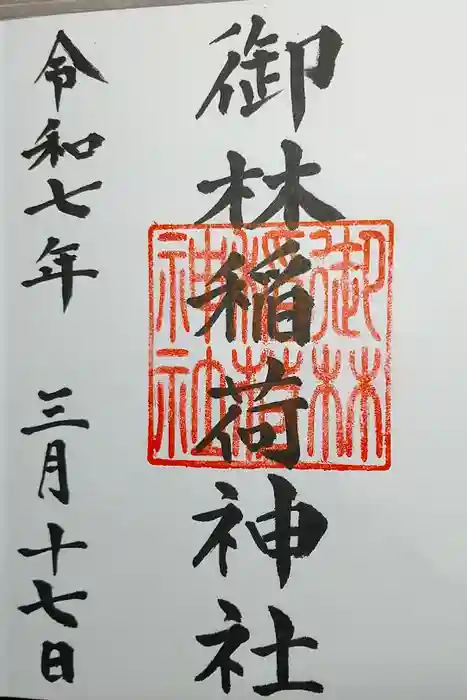 御林稲荷神社
御林
稲荷
神社
令和七年 三月十七日